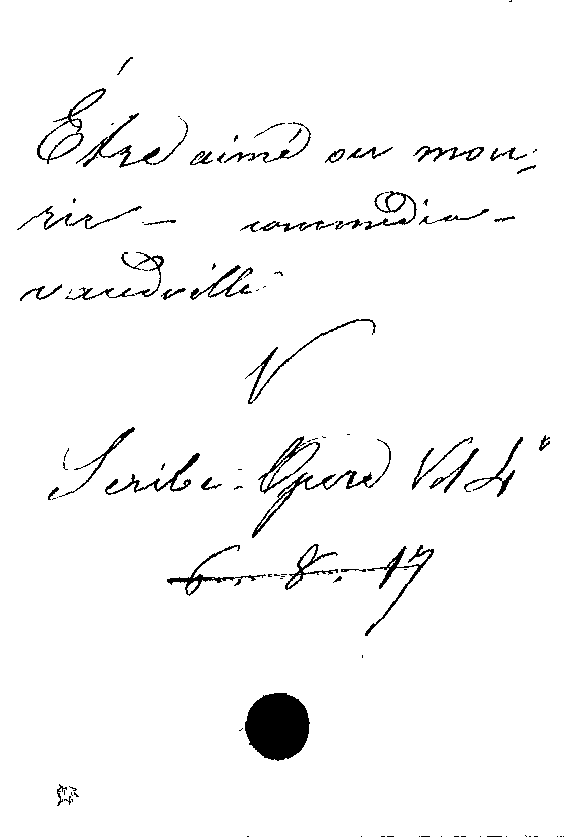 Être aimé ou mou-
rir - commedia-
vaudville
V
Scribe: Opere Vol 4°
6. 8. 17